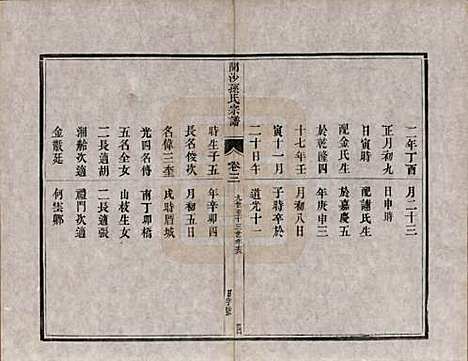 二年丁酉
正月初九
日寅時
配金氏生
於乾隆四
十七年壬
寅十一月
二十日午
時生子五
長名俊次
名偉三奎
光四名傳
五名全女
二長適胡
湘舲次適
金獻廷
月二十三
日申時
配謝氏生
於嘉慶五
年庚申三
月初八日
子時卒於
道光十一
年辛卯四
月初五日
戌時厝城
南丁卯橋
山枝生女
二長適張
禮門次適
何雲鄉
開沙孫氏宗譜
卷二